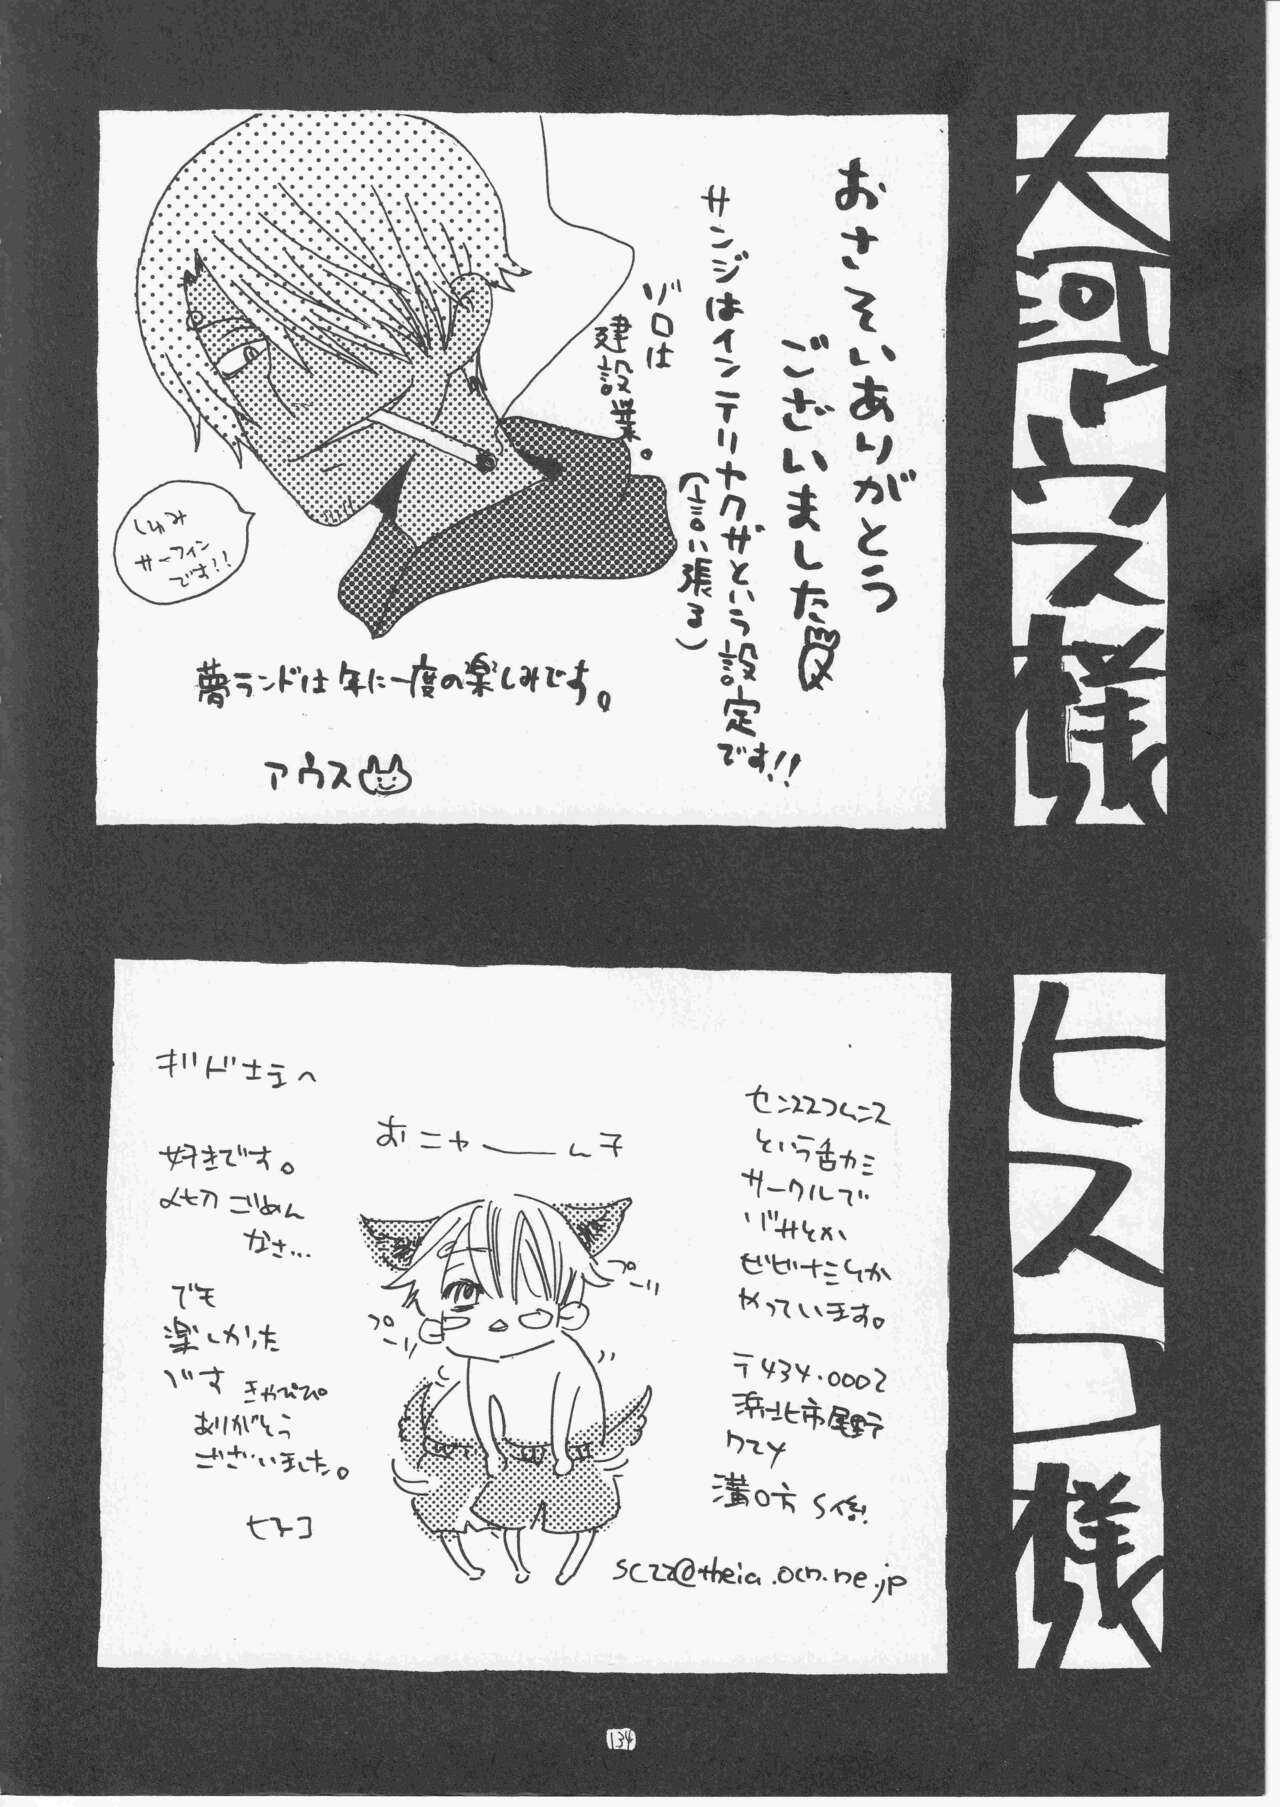 大河アウス様
おさそいありがとう
ございました
サンジはインテリヤクザという設定です!!
(言い張る)
ゾロは
建設業。
しゅみ
サーフィン
です!!
夢ランドは年に一度の楽しみです。
アウス
ヒスコ様
という
サークルで
ゾサンとか
ビビナミとか
やっています。
〒434.0002
浜北市尾野
溝口方 S係
sc22@theia.ocn.ne.jp
おニャーーん子
プーリ
プーリ
好きです。
〆切ごめん
なさ…
でも
楽しかった
です
きゃぴぴ
ありがとう
ございました。
ヒスコ
134